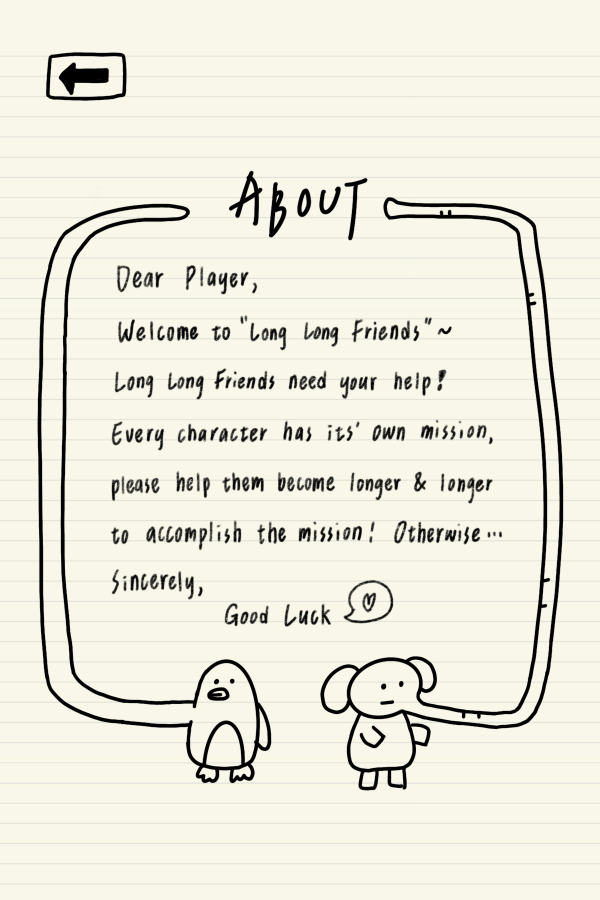 ABOUT
Dear Player,
Welcome to "Long Long Friends"~
Long Long Friends need your help!
Every character has its' own mission,
please help them become longer & longer
to accomplish the mission! Otherwise...
Sincerely,
Good Luck